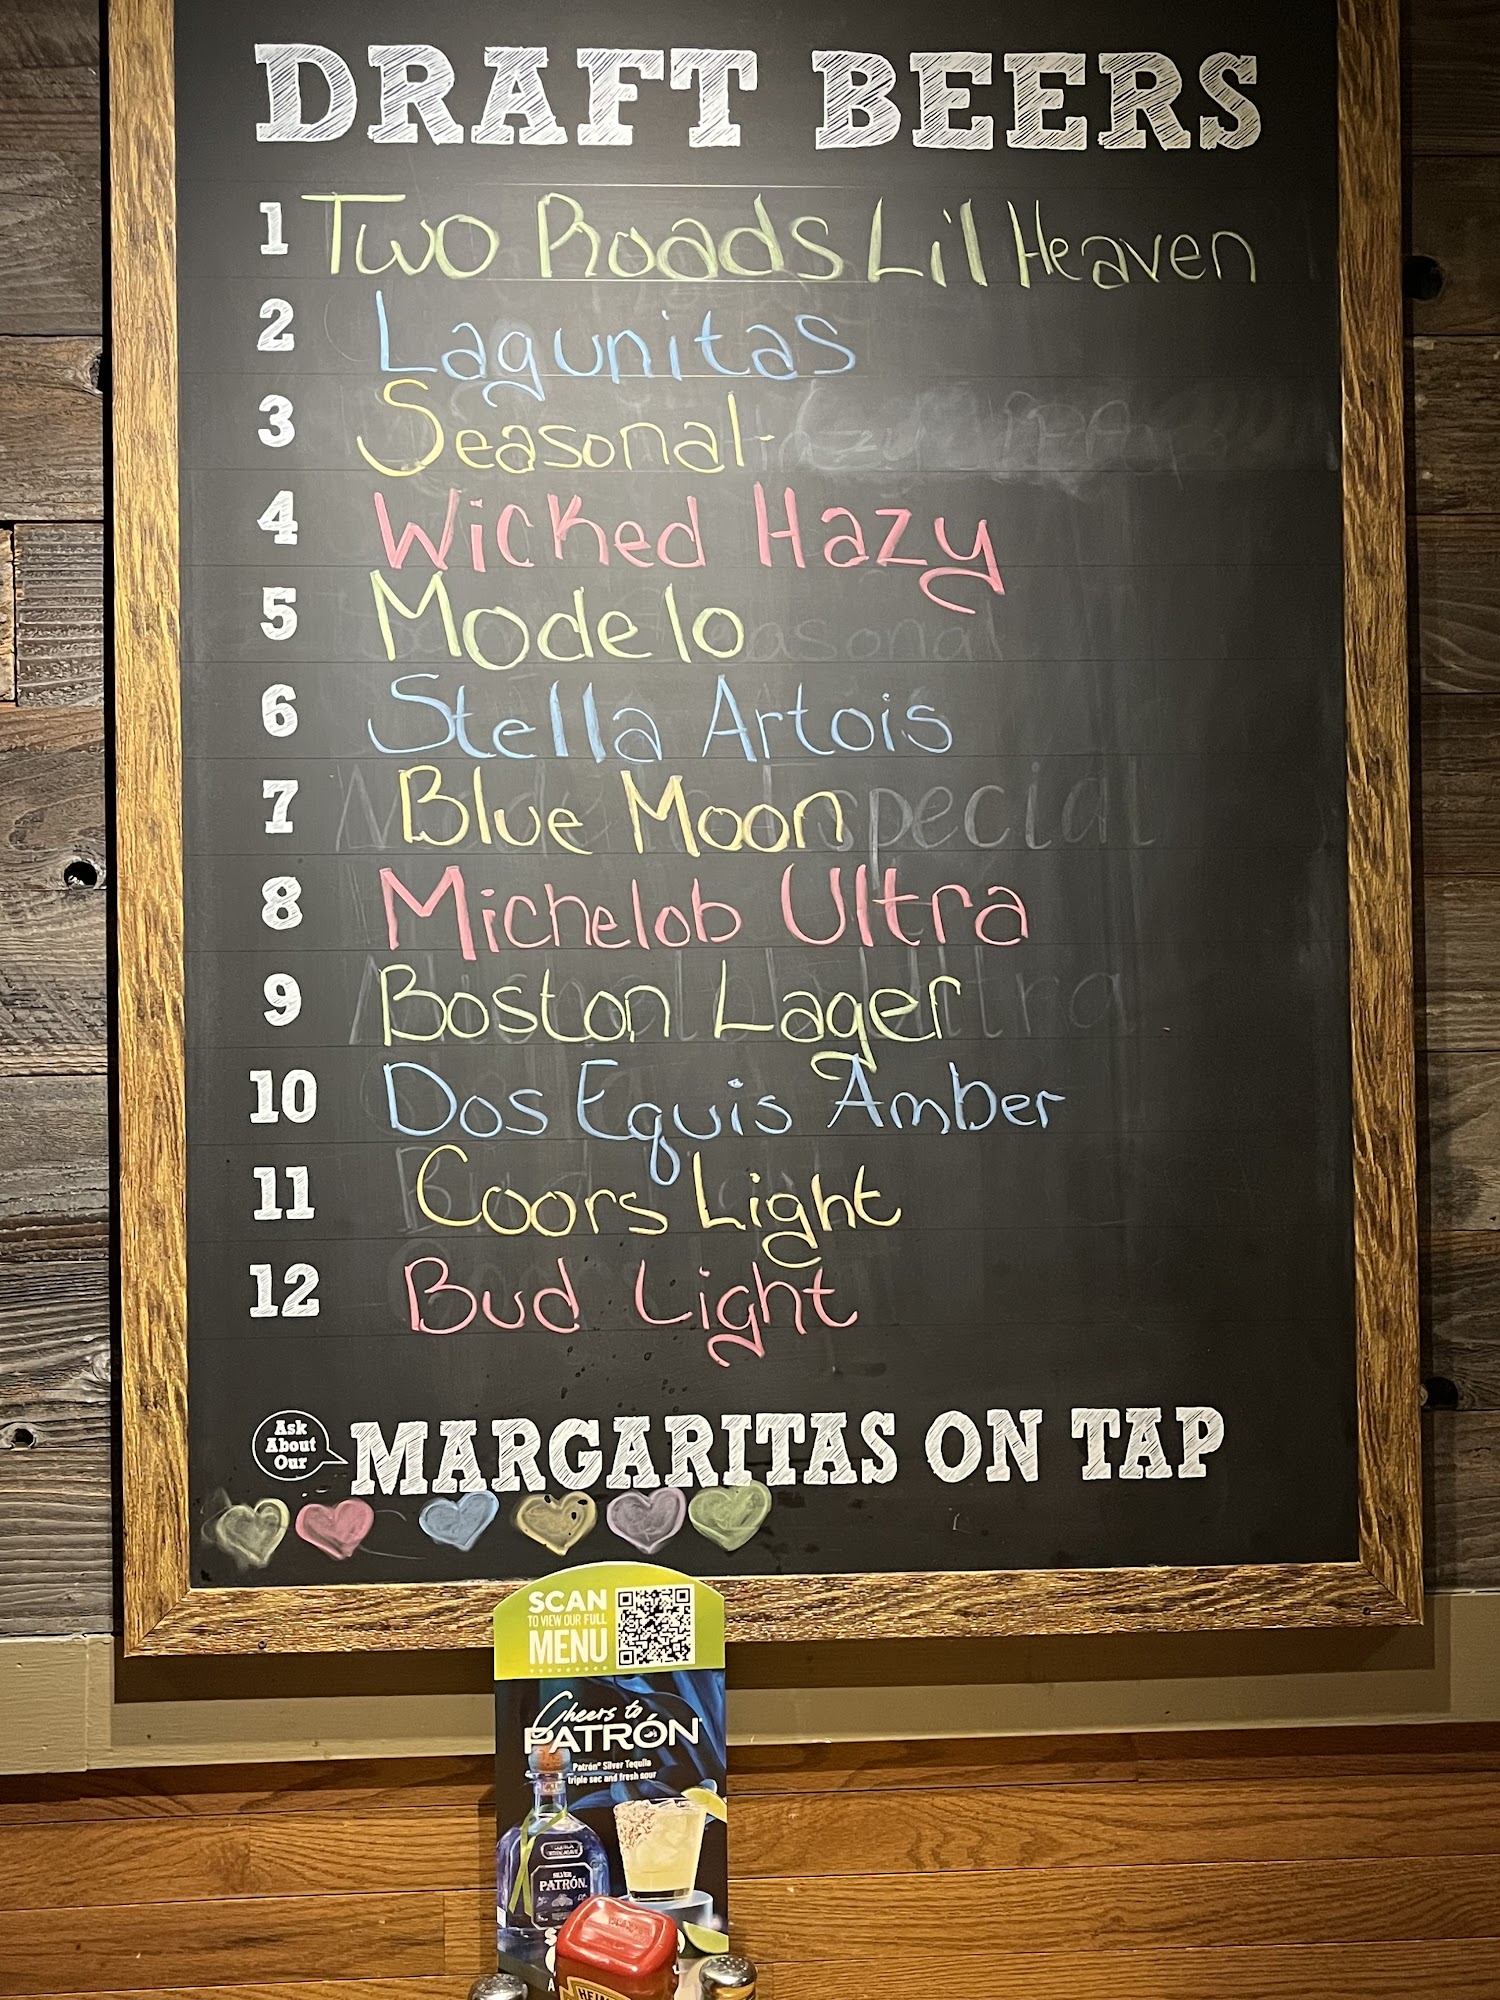 DRAFT BEERS
1 Two Roads Lil Heaven
2 Lagunitas
3 Seasonal-
4 Wicked Hazy
5 Modelo
6 Stella Artois
7 Blue Moon
8 Michelob Ultra
9 Boston Lager
10 Dos Equis Amber
11 Coors Light
12 Bud Light
Ask About Our MARGARITAS ON TAP
SCAN
TO VIEW OUR FULL
MENU
Cheers to
PATRÓN
Patrón® Silver Tequila
triple sec and fresh sour
SILVER
PATRÓN
HEINZ